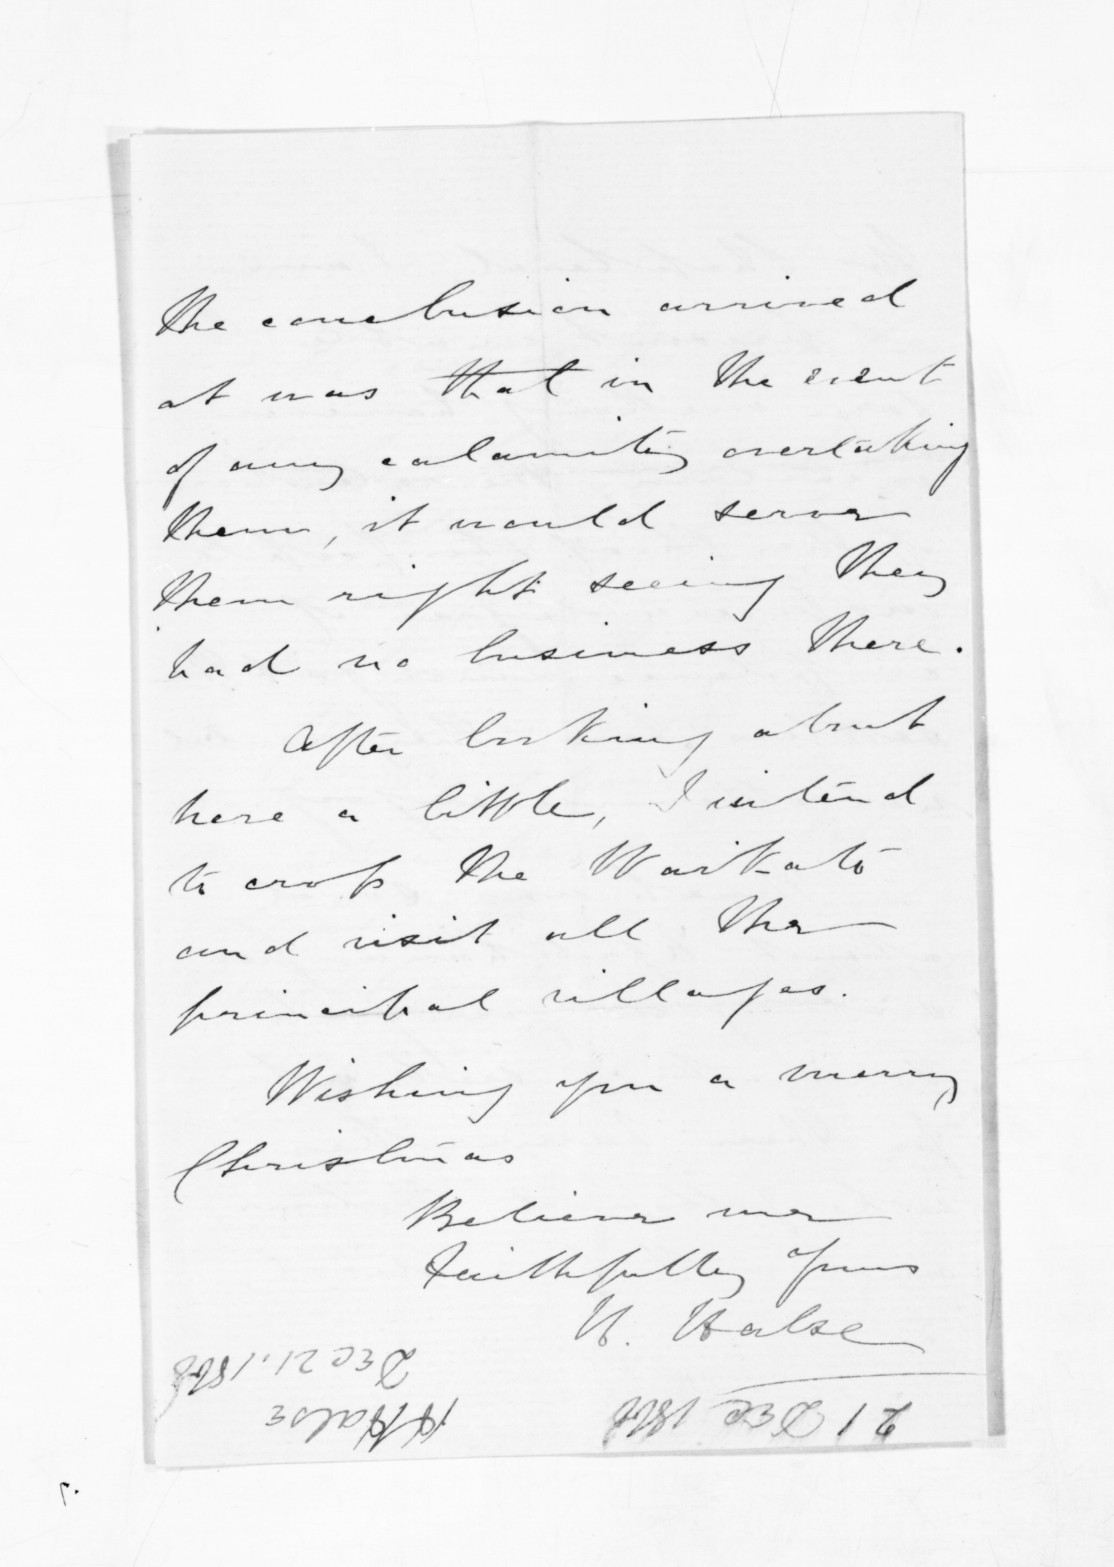 the conclusion arrived
at was that in the event
of any calamity overtaking
them, it would serve
them right seeing they
had no business there.
After looking about
here a little, I intend
to cross the Waikato
and visit all the
principal villages.
Wishing you a merry
Christmas
Believe me
faithfully yours
H. Halse
21 Dec
H Halse
Dec 21.